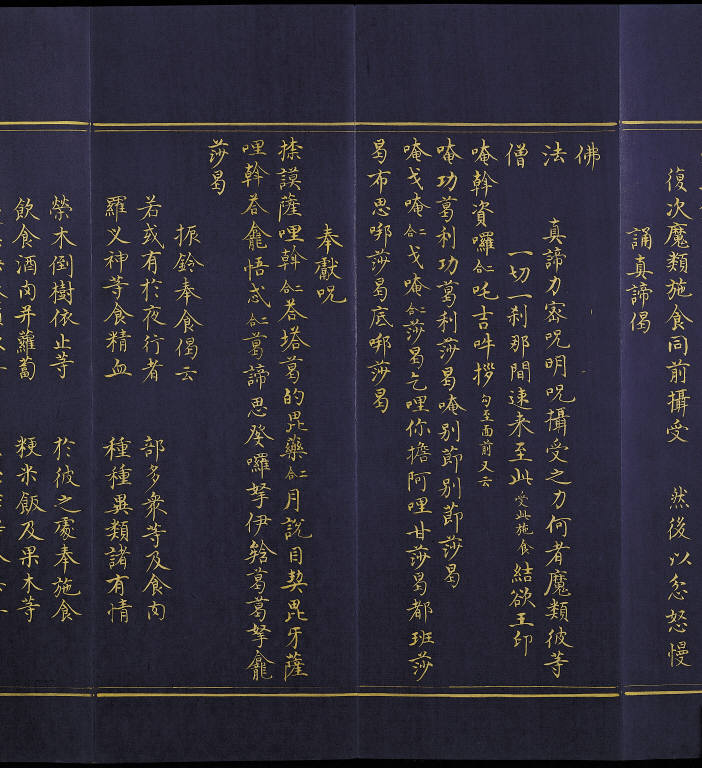 復次魔類施食同前攝受 然後以忿怒慢
誦真諦偈
佛
法 真諦力密呪明呪攝受之力何者魔類彼等
僧 一切一刹那間速来至此受此施食結欲王印
唵斡資囉合二吒吉吽拶勾至面前又云
唵功葛利功葛利莎曷唵别莭别莭莎曷
唵戈唵合二戈唵合二莎曷乞哩你擔阿哩甘莎曷都班莎
曷布思㖿莎曷底㖿莎曷
奉獻呪
捺謨薩哩斡合二荅塔葛的毘藥合二月説目契毘牙薩
哩斡荅龕悟忒合二葛諦思癹囉拏伊㗣葛葛拏龕
莎曷
振鈴奉食偈云
若或有於夜行者 部多衆等及食肉
羅义神等食精血 種種異類諸有情
榮木倒樹依止等 於彼之處奉施食
飲食酒肉并蘿蔔 粳米飯及果木等